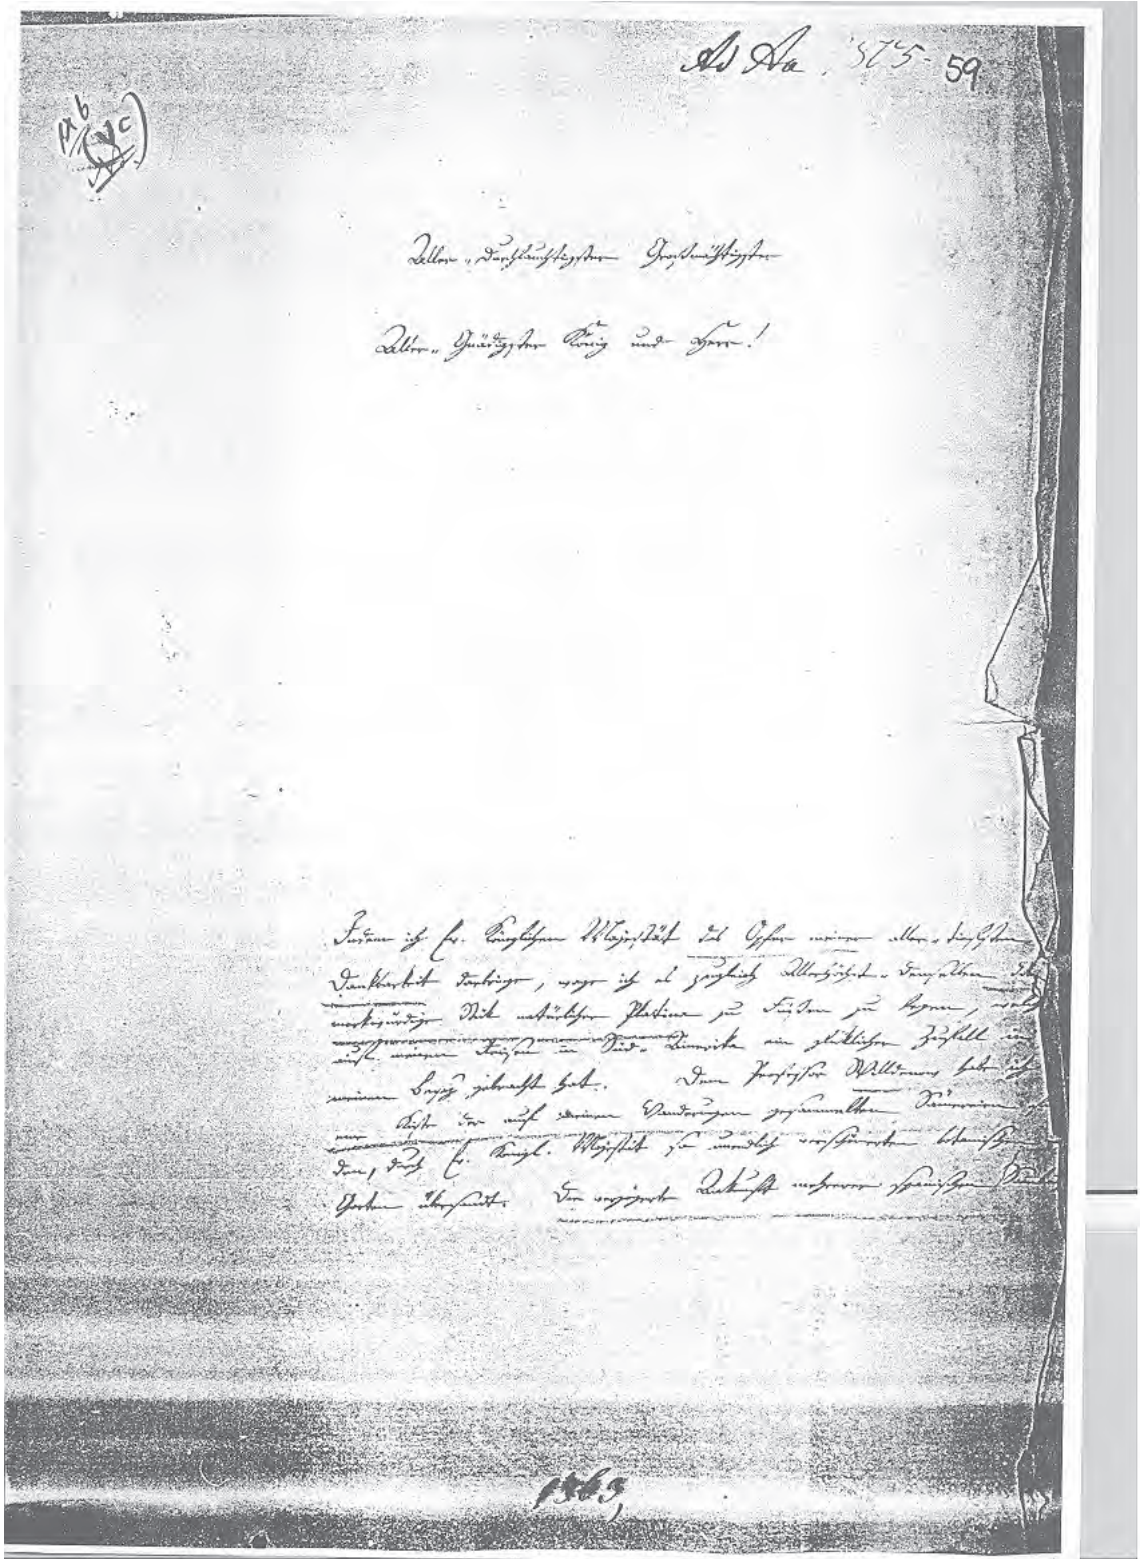 Ad Aa. 375- 59
IX b
(V c)
Aller-Durchlauchtigster Großmächtigster
Aller-Gnädigster König und Herr!
Indem ich Ew. Königlichen Majestät das Opfer meiner aller-tiefsten
Dankbarkeit darbringe, wage ich es zugleich Allerhöchst-demselben die
merkwürdige Stük natürlicher Platina zu Füßen zu legen,
auf meinen Reisen in Süd-Amerika ein glüklicher Zufall in
meinen Besiz gebracht hat. Dem Professor Willdenow habe ich
eine Kiste der auf meinen Wanderungen gesammelten Sämereien
den, durch Ew. Königl. Majestät so unendlich verschönerten botanischen
Garten übersandt. Die verzögerte Ankunft mehrerer spanischen
1363,